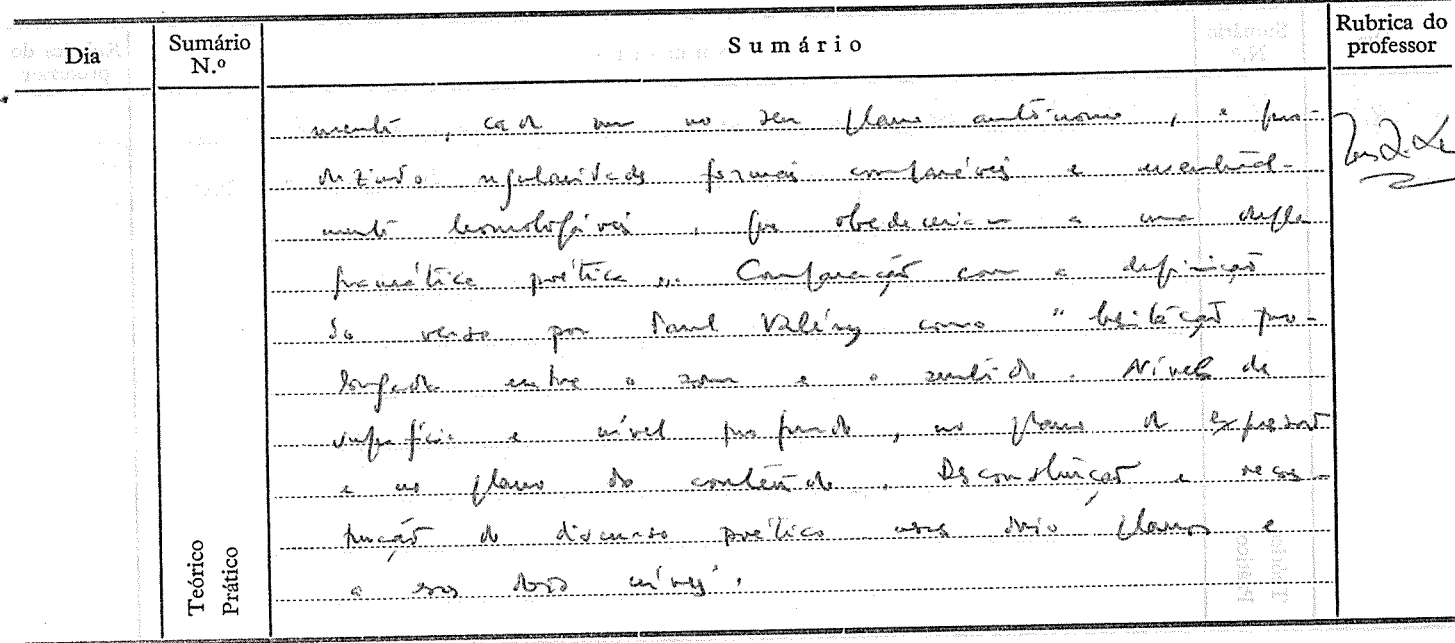 Dia
Sumário N.º
Sumário
Rubrica do professor
mente, cada um no seu plano autónomo, e pro-
duzindo regularidades formais comparáveis e eventual-
mente homologáveis, que obedeceriam a uma dupla
gramática poética". Comparação com a definição
do verso por Paul Valéry como "hesitação pro-
longada entre o som e o sentido. Níveis de
superfície e nível profundo, no plano da expressão
e no plano do conteúdo. Desconstrução e recons-
trução do discurso poético nos dois planos e
a esses dois níveis.
Teórico
Prático